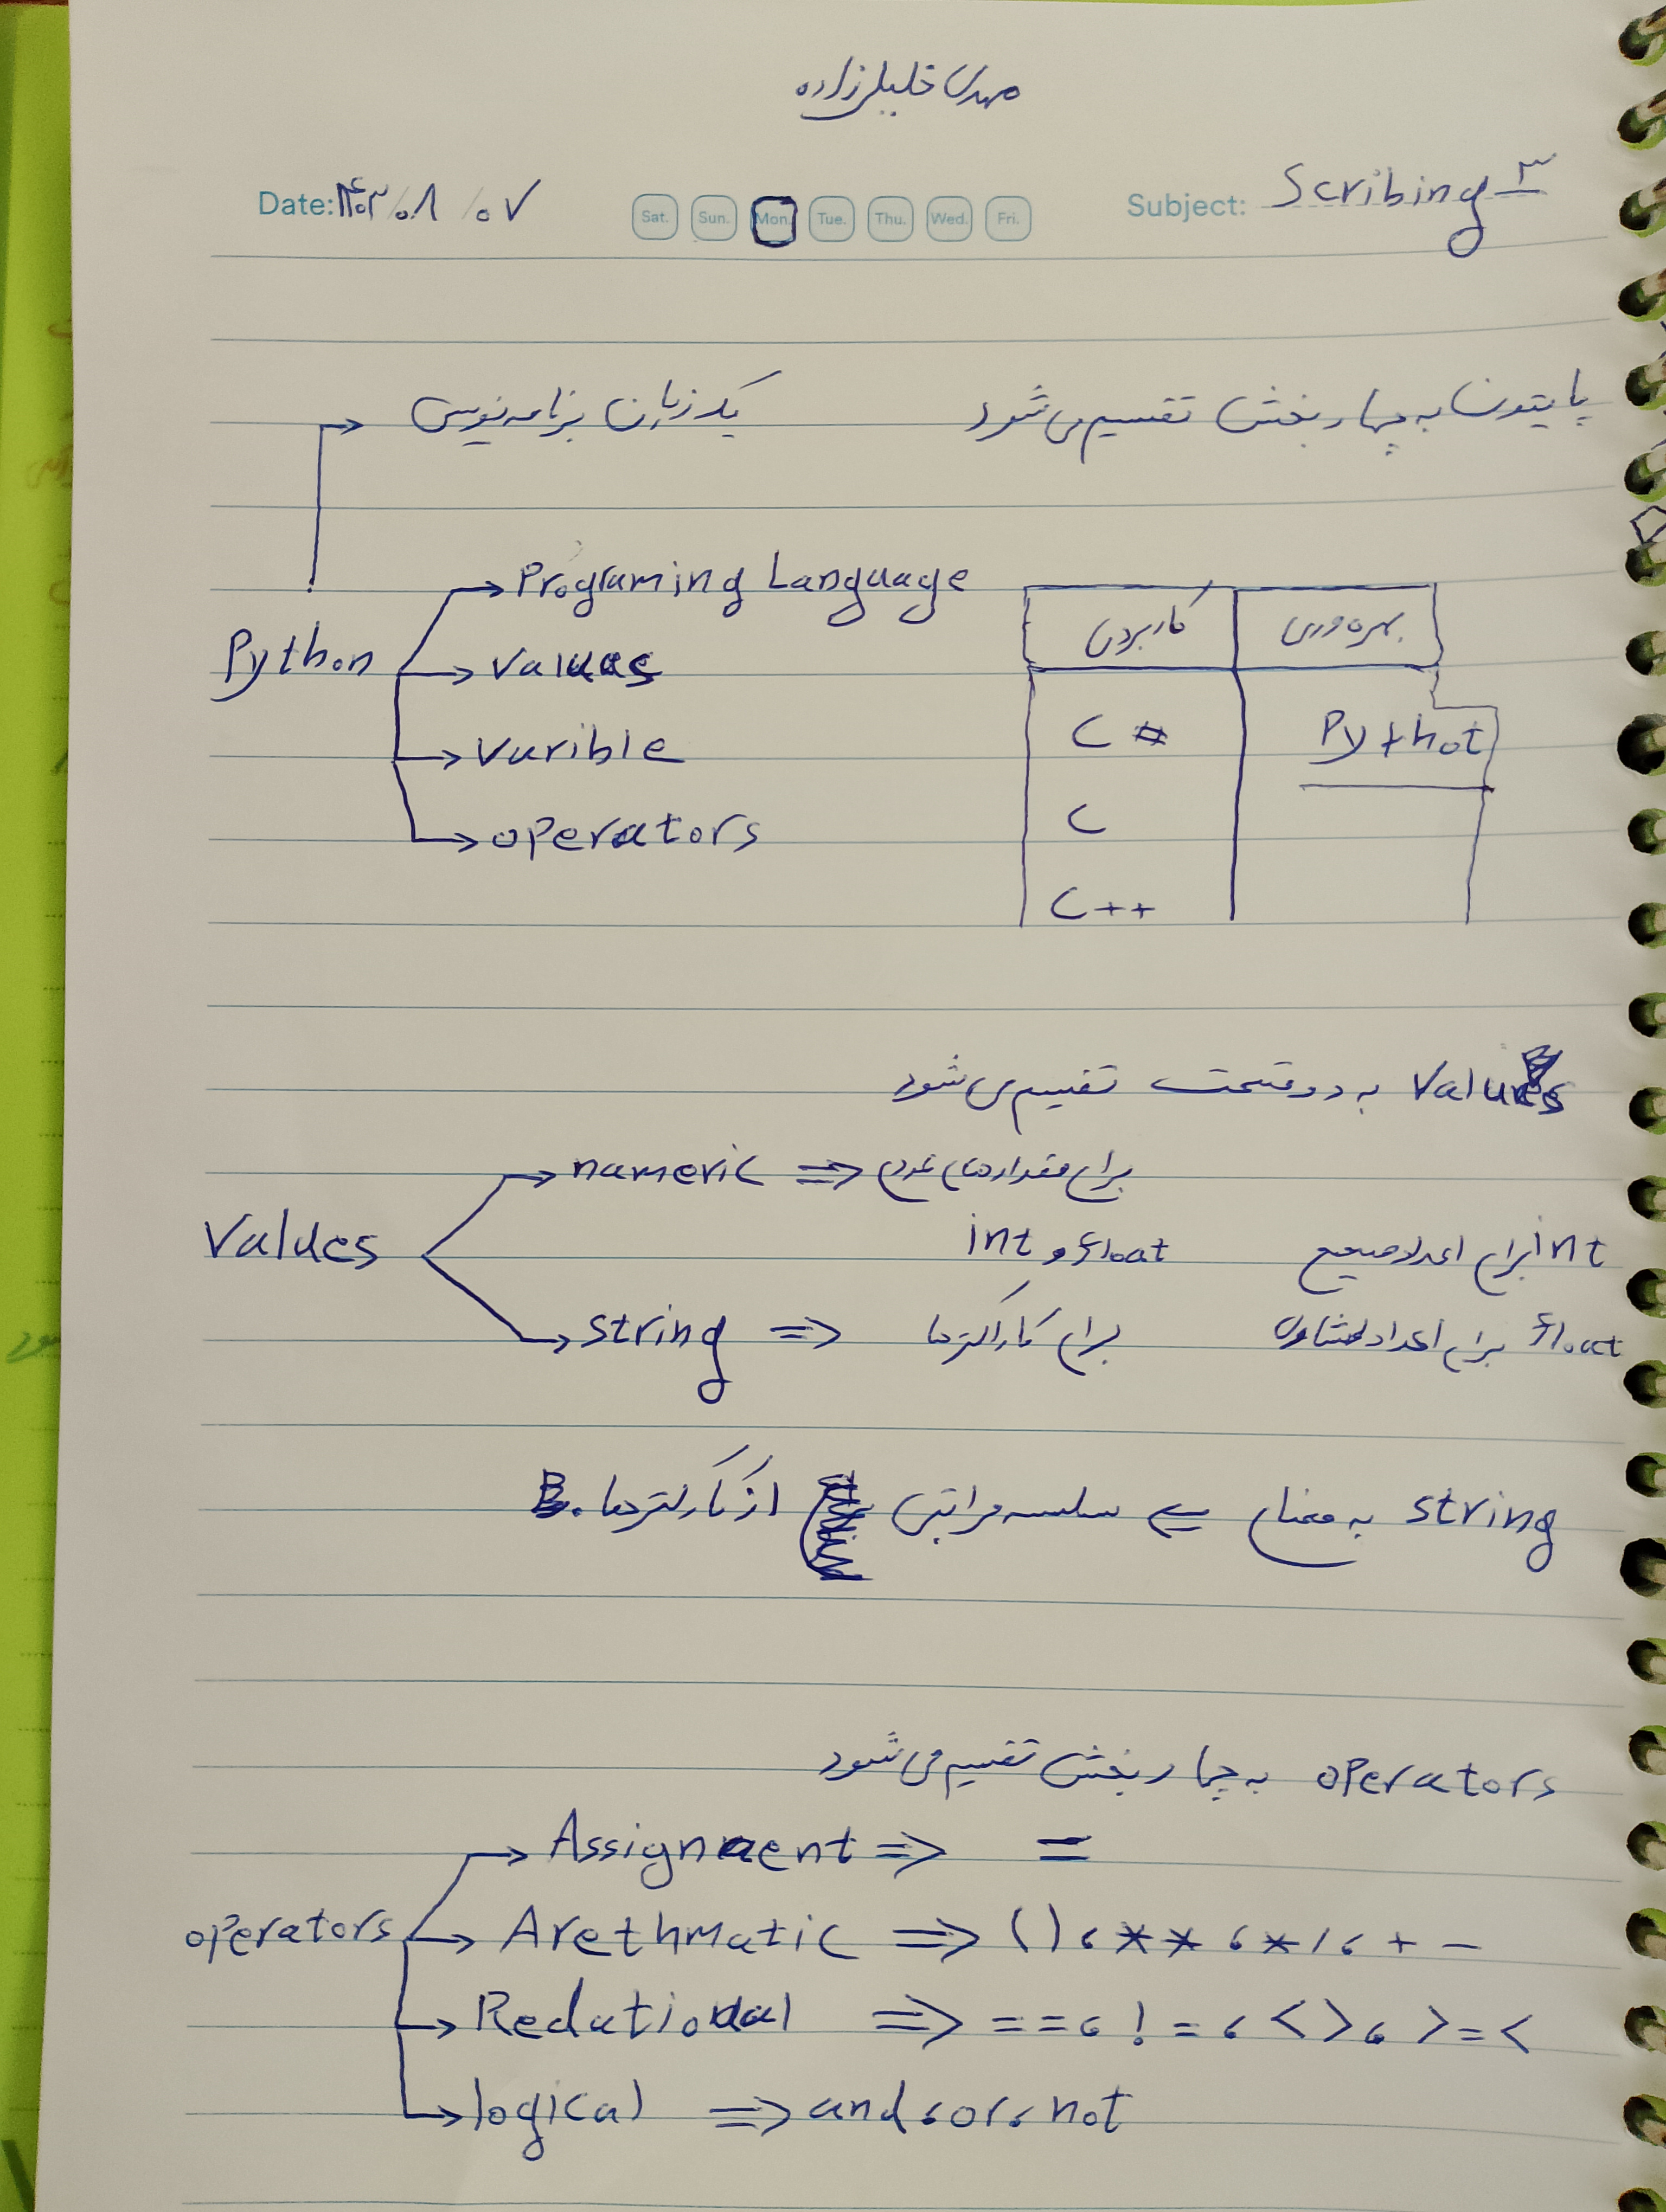 مهدی خلیل‌زاده
Date: ۱۴۰۳/۰۸/۰۷ Sat. Sun. Mon. Tue. Thu. Wed. Fri. Subject: Scribing ۳
پایتون به چهار بخش تقسیم می‌شود
یک زبان برنامه‌نویسی
Python
Programing Language
Values
varible
operators
کاربردی بهره‌وری
C # Pythot
C
C++
Values به دو قسمت تقسیم می‌شود
Values
numeric ⇒ برای مقدارهای عددی
int و float
int برای اعداد صحیح
string ⇒ برای کاراکترها
float برای اعداد اعشاری
string به معنای یه سلسه مراتبی از کاراکترها.
operators به چهار بخش تقسیم می‌شود
operators
Assignment ⇒ =
Arethmatic ⇒ ()، **، * /، + -
Relational ⇒ ==، !=، < >، >=<
logical ⇒ and، or، not